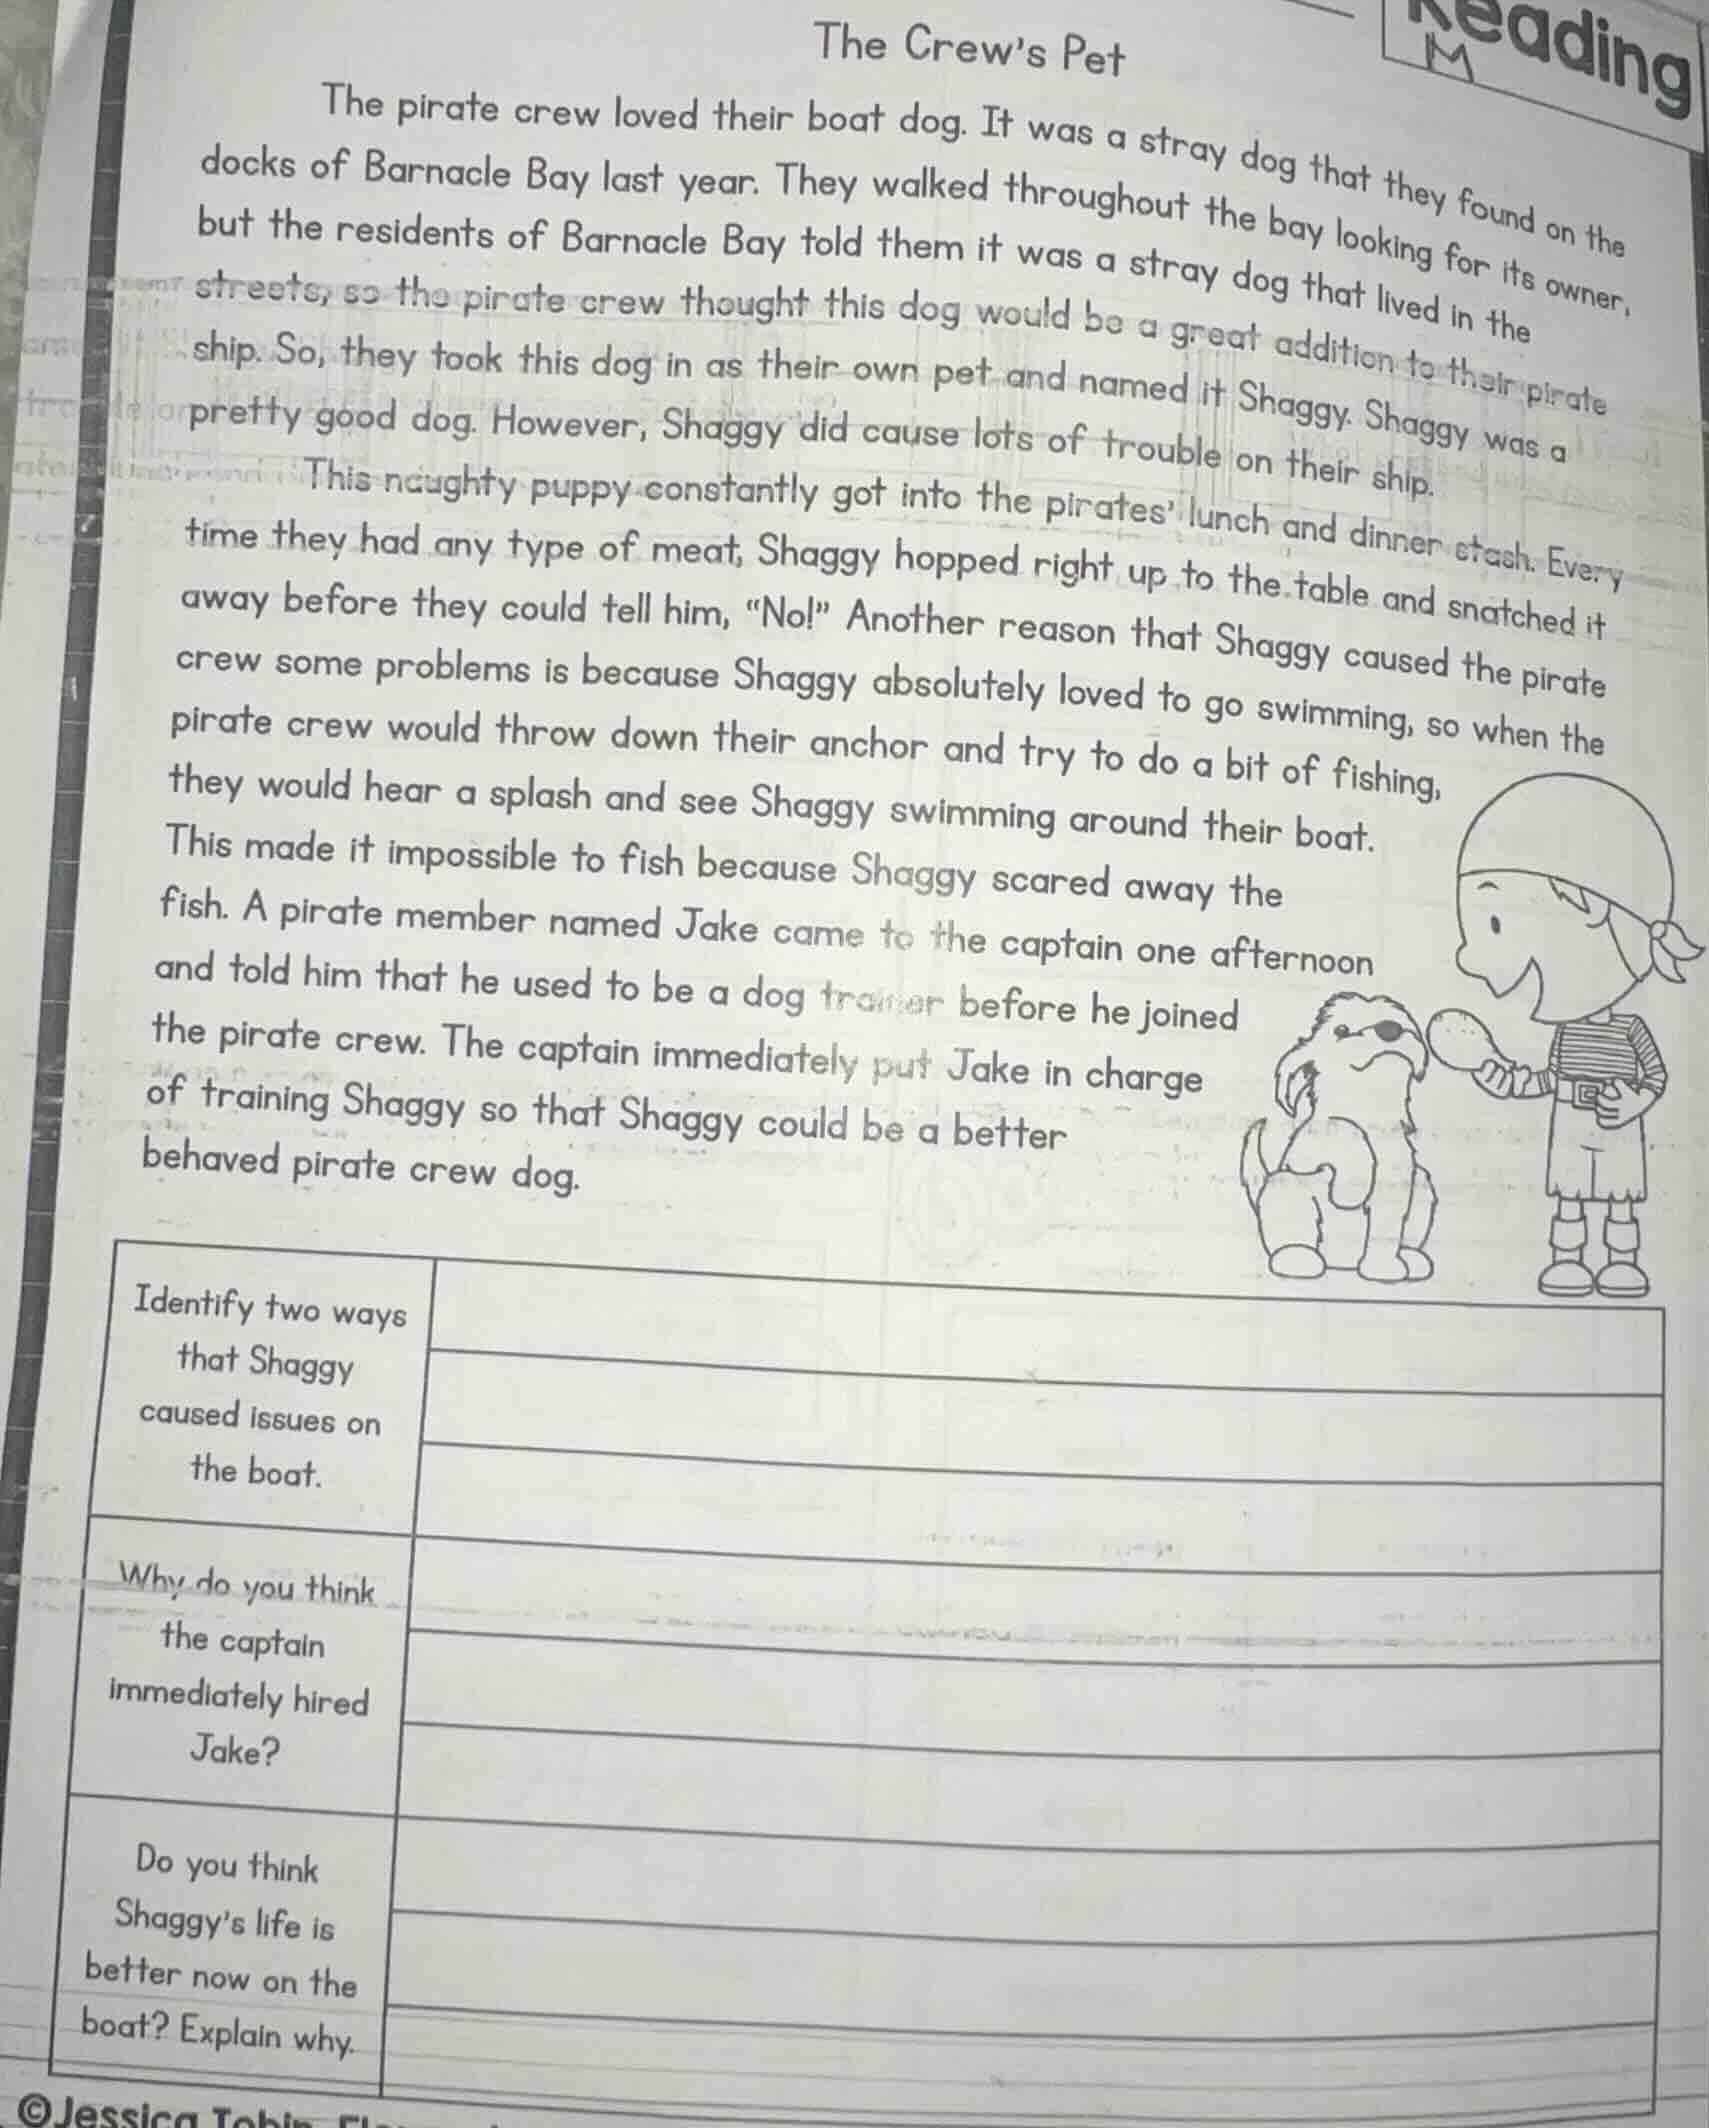 Reading
M
The Crew's Pet
The pirate crew loved their boat dog. It was a stray dog that they found on the
docks of Barnacle Bay last year. They walked throughout the bay looking for its owner,
but the residents of Barnacle Bay told them it was a stray dog that lived in the
streets, so the pirate crew thought this dog would be a great addition to their pirate
ship. So, they took this dog in as their own pet and named it Shaggy. Shaggy was a
pretty good dog. However, Shaggy did cause lots of trouble on their ship.
This naughty puppy constantly got into the pirates' lunch and dinner stash. Every
time they had any type of meat, Shaggy hopped right up to the table and snatched it
away before they could tell him, "No!" Another reason that Shaggy caused the pirate
crew some problems is because Shaggy absolutely loved to go swimming, so when the
pirate crew would throw down their anchor and try to do a bit of fishing,
they would hear a splash and see Shaggy swimming around their boat.
This made it impossible to fish because Shaggy scared away the
fish. A pirate member named Jake came to the captain one afternoon
and told him that he used to be a dog trainer before he joined
the pirate crew. The captain immediately put Jake in charge
of training Shaggy so that Shaggy could be a better
behaved pirate crew dog.
Identify two ways
that Shaggy
caused issues on
the boat.
Why do you think
the captain
immediately hired
Jake?
Do you think
Shaggy's life is
better now on the
boat? Explain why.
©Jessica Tobin